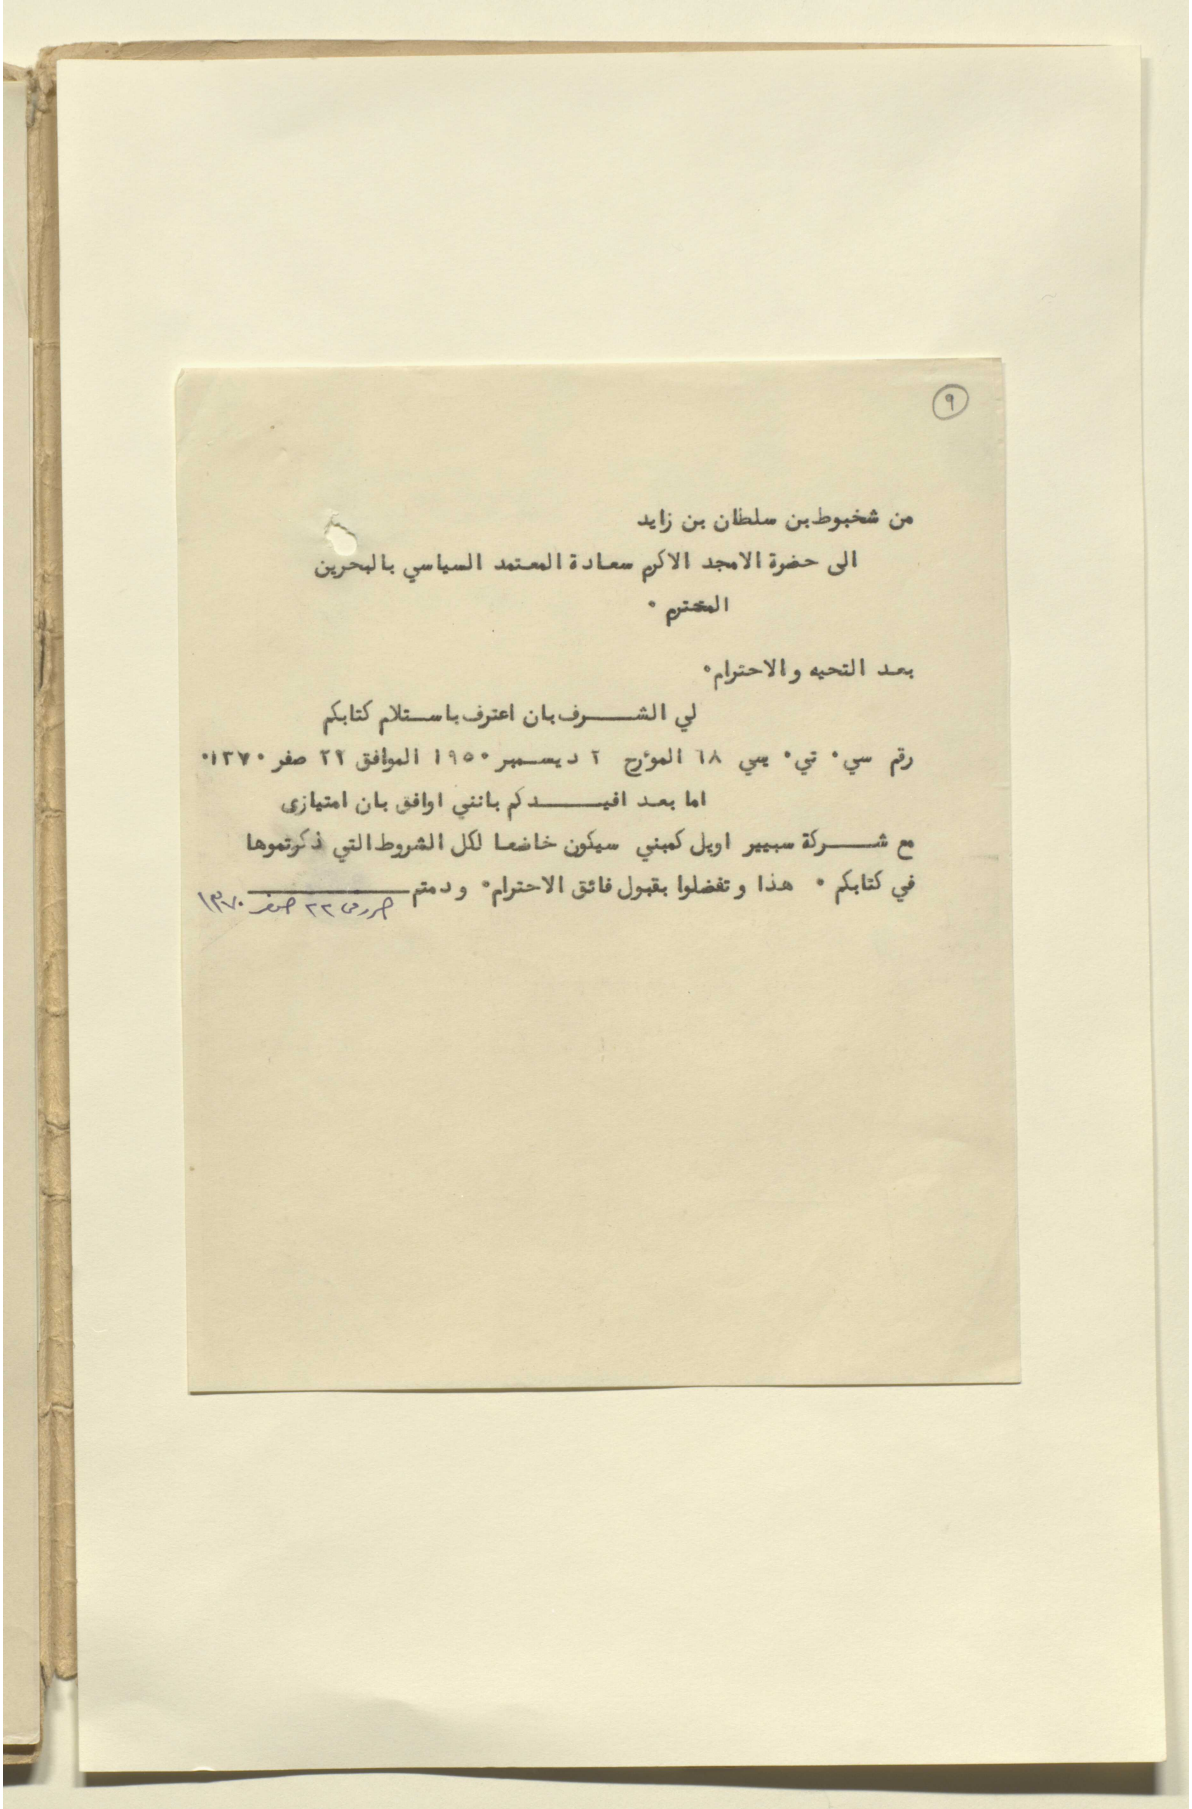 ٩
من شخبوط بن سلطان بن زايد
الى حضرة الامجد الاكرم سعادة المعتمد السياسي بالبحرين
المحترم ٠
بعد التحيه والاحترام٠
لي الشـــرف بان اعترف باستلام كتابكم
رقم سي٠ تي٠ يسي ٦٨ المؤرح ٢ ديسمبر ١٩٥٠ الموافق ٢٢ صفر ١٣٧٠٠
اما بعد افيـــدكم بانني اوافق بان امتيازى
مع شـــركة سبيير اويل كمبني سيكون خاضعا لكل الشروط التي ذكرتموها
في كتابكم ٠ هذا وتفضلوا بقبول فائق الاحترام٠ ودمتم
حرر في ٢٢ صفر ١٣٧٠